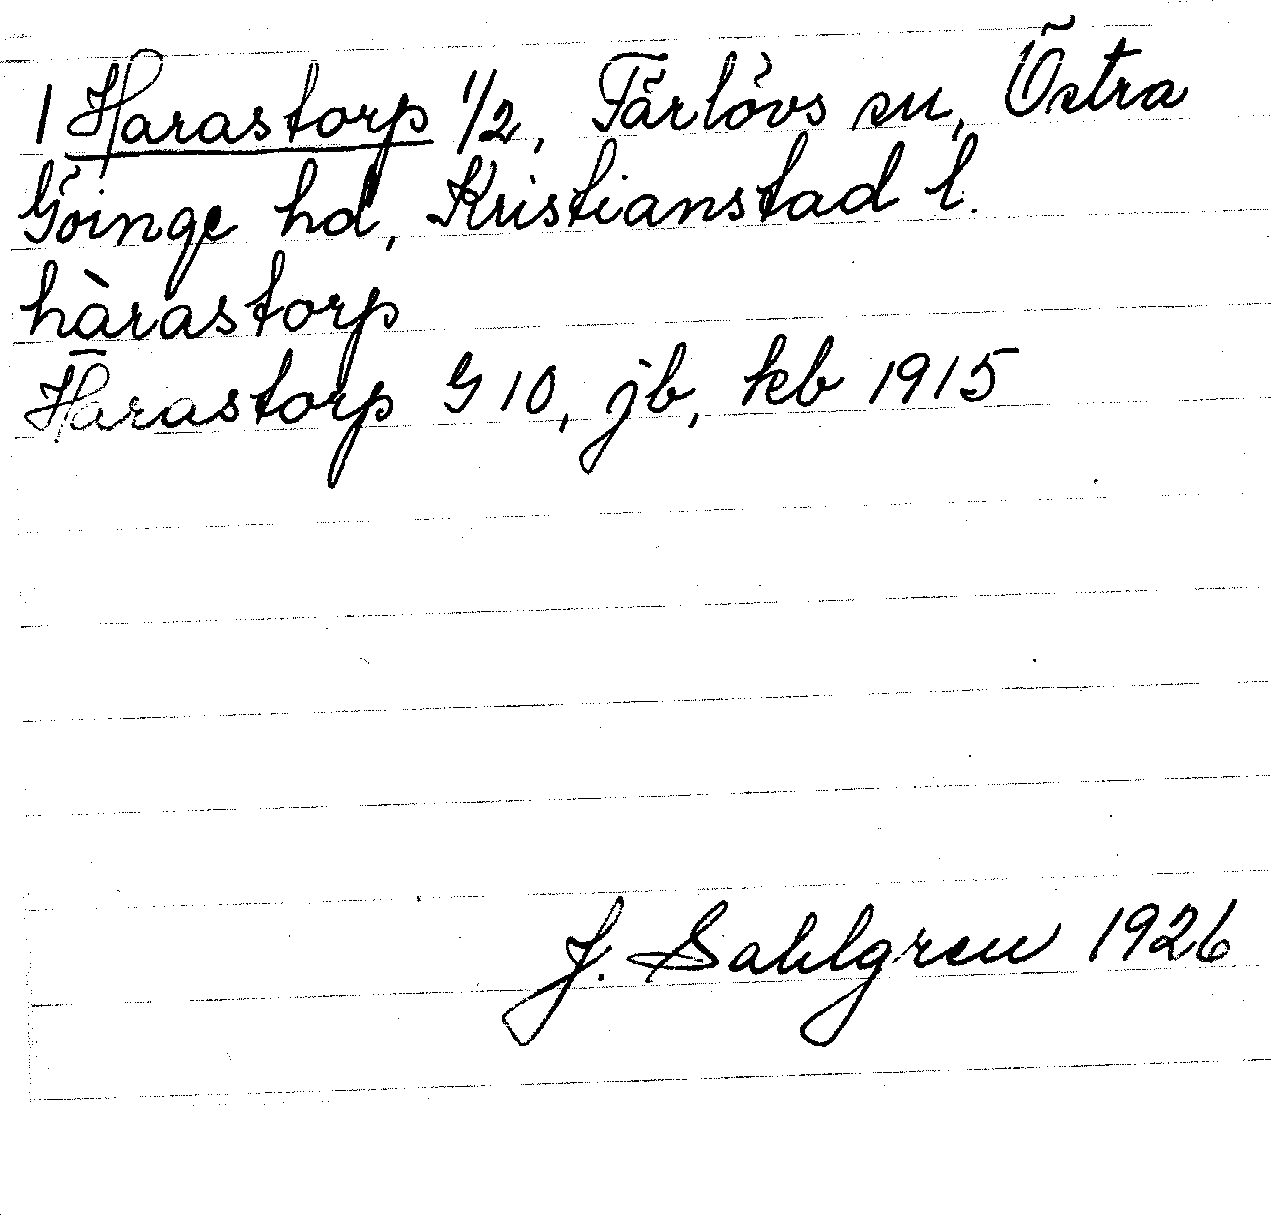 1 Harastorp 1/2, Färlövs sn, Östra
Göinge hd, Kristianstad l.
hàrastorp
Härastorp G 10, jb, kb 1915
J. Sahlgren 1926